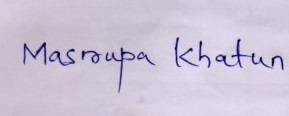 Masroupa Khatun